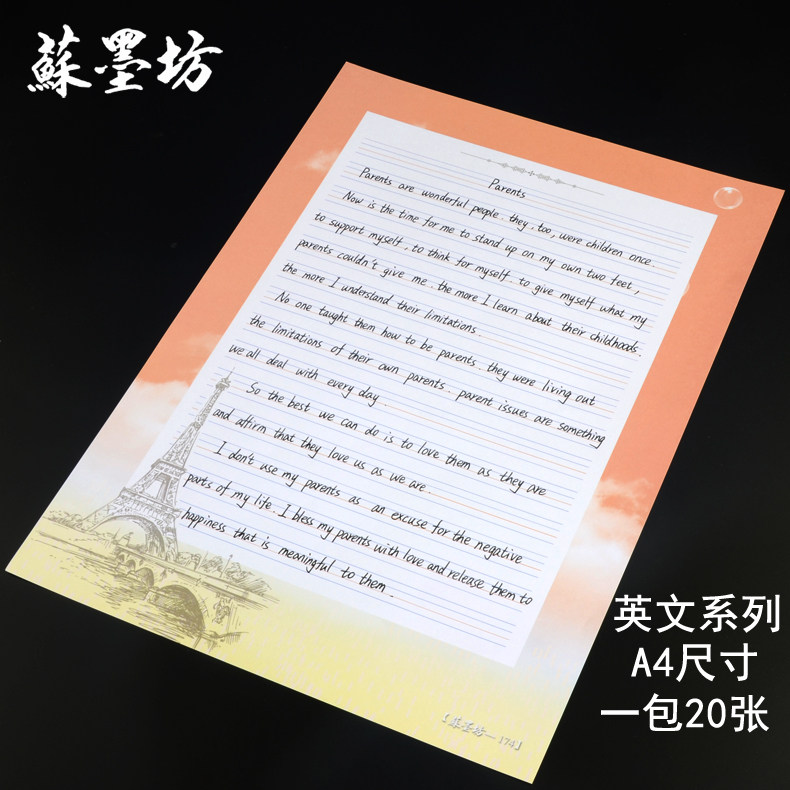 蘇墨坊
Parents
Parents are wonderful people. they, too, were children once.
Now is the time for me to stand up on my own two feet,
to support myself, to think for myself. to give myself what my
parents couldn't give me. the more I learn about their childhoods.
the more I understand their limitations.
No one taught them how to be parents. they were living out
the limitations of their own parents. parent issues are something
we all deal with every day.
So the best we can do is to love them as they are
and affirm that they love us as we are.
I don't use my parents as an excuse for the negative
parts of my life. I bless my parents with love and release them to
happiness that is meaningful to them.
【蘇墨坊—174】
英文系列
A4尺寸
一包20张